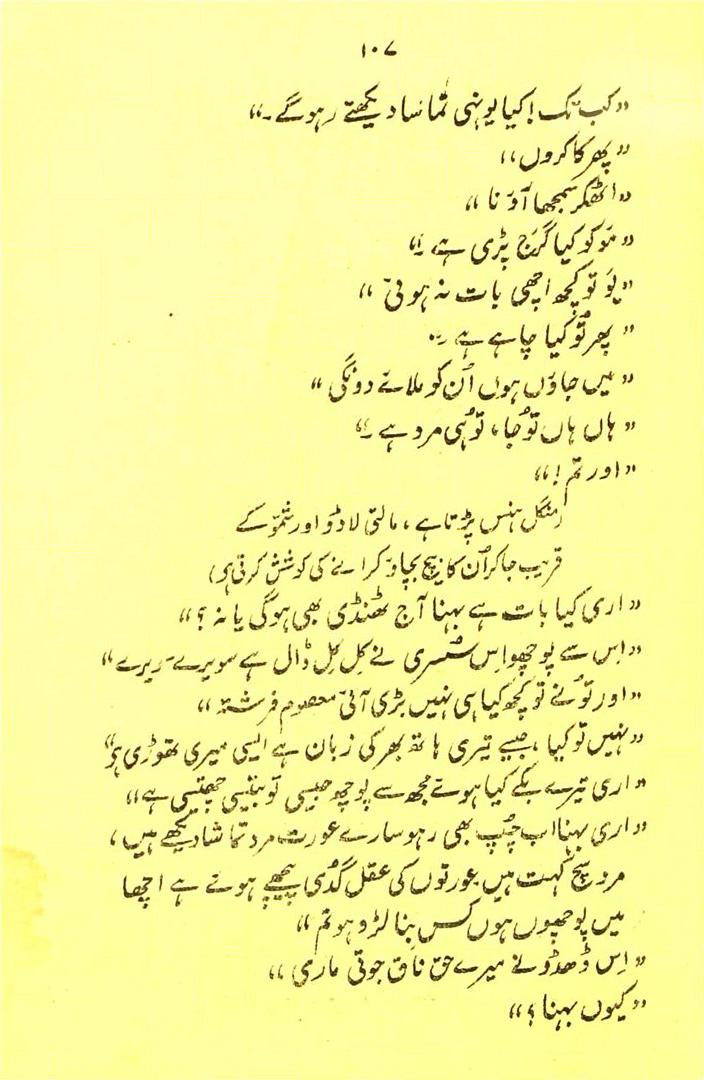 ۱۰۷
"کب تک! کیا یونہی تماشا دیکھتے رہو گے۔"
"پھر کا کروں"
"اٹھکر سمجھا آؤ نا"
"مَو کو کیا گرج پڑی ہے۔"
"یو تو کچھ اچھی بات نہ ہوئی"
"پھر تُو کیا چاہے ہے۔"
"میں جاؤں ہوں اُن کو ملائے دونگی"
"ہاں ہاں تُو جا، تُو ہی مرد ہے۔"
"اور تم!"
(منگل ہنس پڑتا ہے، مالتی لاڈو اور شمّو کے
قریب جا کر اُن کا بیچ بچاؤ کرانے کی کوشش کرتی ہے)
"اری کیا بات ہے بہنا آج ٹھنڈی بھی ہوگی یا نہ؟"
"اِس سے پوچھو اِس سُسری نے کِل کِل ڈال ہے سویرے۔ریرے"
"اور تُو نے تو کچھ کیا ہی نہیں بڑی آئی معصوم فرشتہ"
"نہیں تو کیا، جیسے تیری ہاتھ بھر کی زبان ہے ایسی میری تھوڑی ہے"
"اری تیرے بکے کیا ہوتے مجھ سے پوچھو جیسی تو ہتیسی چھتیسی ہے"
"اری بہنا اب چُپ بھی رہو سارے عورت مرد تماشا دیکھے ہیں،
مرد سچ کہت ہیں عورتوں کی عقل گدُی پیچھے ہوتے ہے اچھا
میں پوچھوں ہوں کس بِنا لڑو ہو تم"
"اِس ڈھڈو نے میرے حق ناق جوتی ماری"
"کیوں بہنا؟"